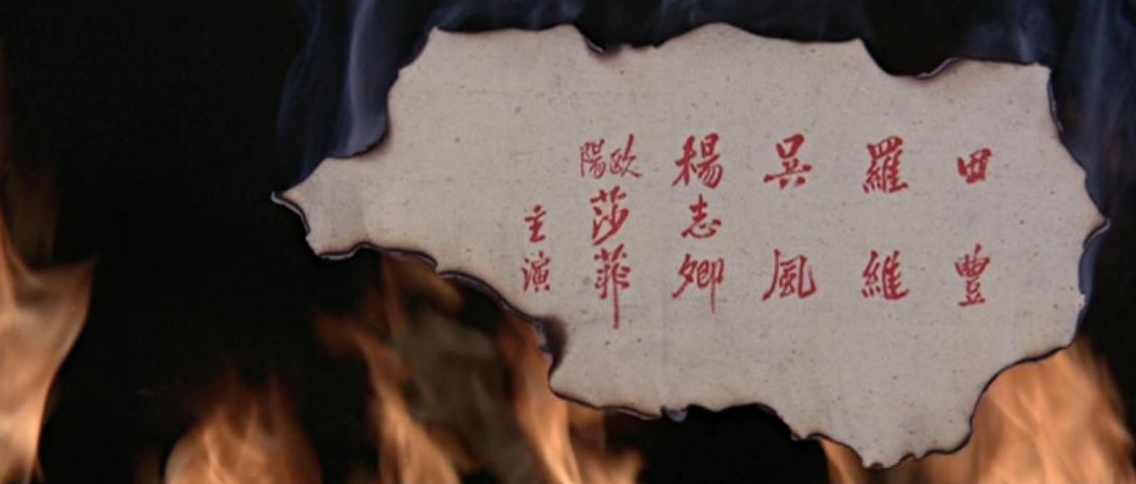 田豐
羅維
吳風
楊志卿
欧陽莎菲
主演